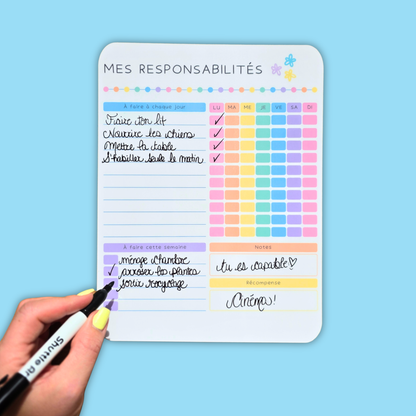 MES RESPONSABILITÉS
À faire à chaque jour LU MA ME JE VE SA DI
Faire son lit
Nourrire les chiens
Mettre la table
S'habiller seule le matin
À faire cette semaine
ménage chambre
arroser les plantes
sortir recyclage
Notes
tu es capable
Récompense
Cinéma!
Shuttle Art